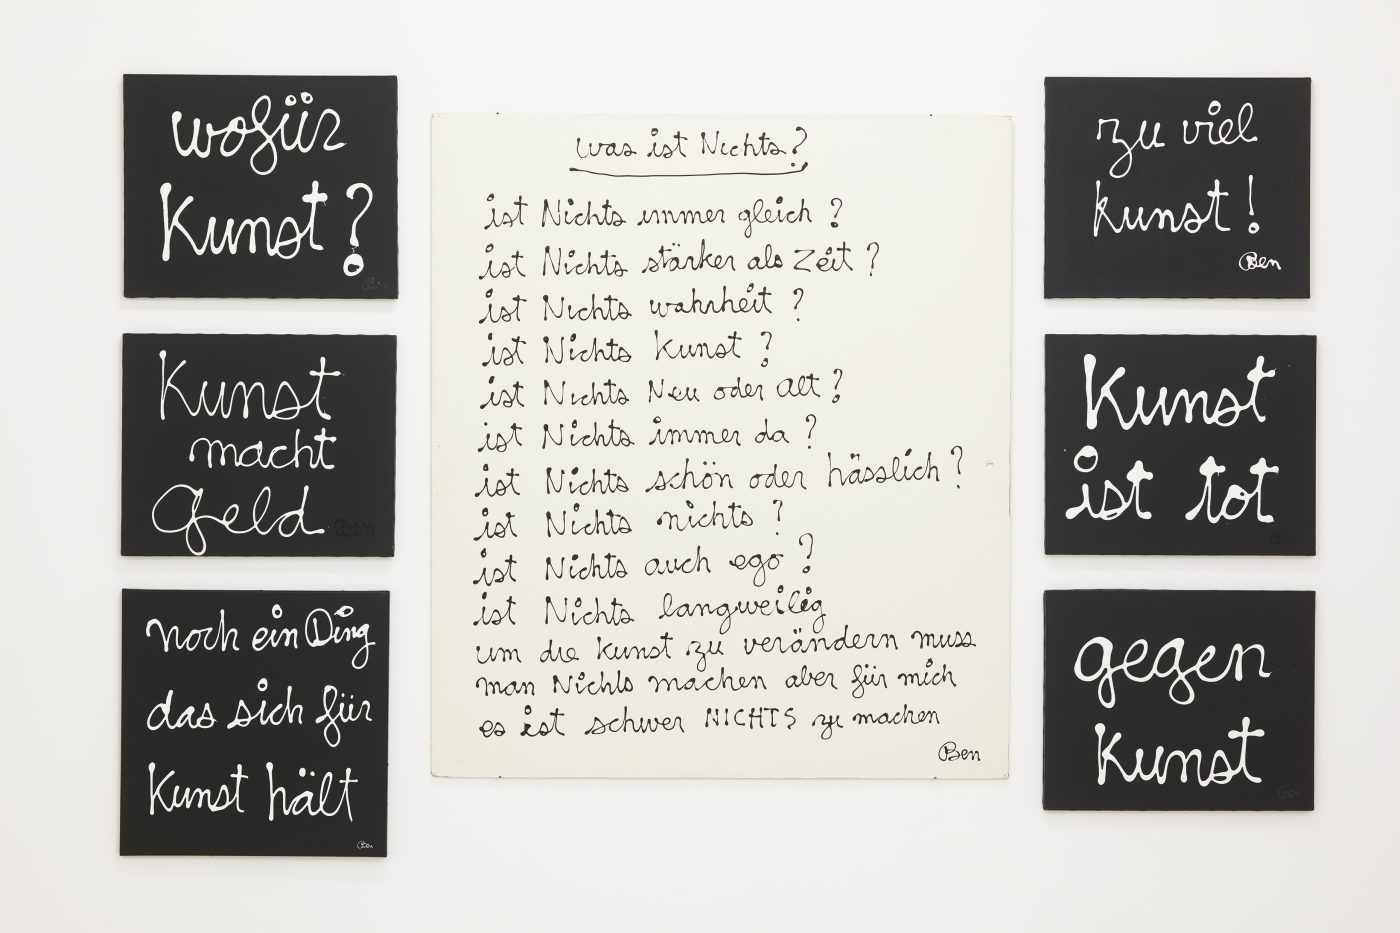 wofür
Kunst?
Ben
Kunst
macht
Geld
Ben
noch ein Ding
das sich für
Kunst hält
Ben
was ist Nichts?
ist Nichts immer gleich ?
ist Nichts stärker als Zeit ?
ist Nichts wahrheit ?
ist Nichts kunst ?
ist Nichts Neu oder alt ?
ist Nichts immer da ?
ist Nichts schön oder hässlich ?
ist Nichts nichts ?
ist Nichts auch ego ?
ist Nichts langweilig
um die kunst zu verändern muss
man Nichts machen aber für mich
es ist schwer NICHTS zu machen
Ben
zu viel
kunst!
Ben
Kunst
ist tot
Ben
gegen
Kunst
Ben